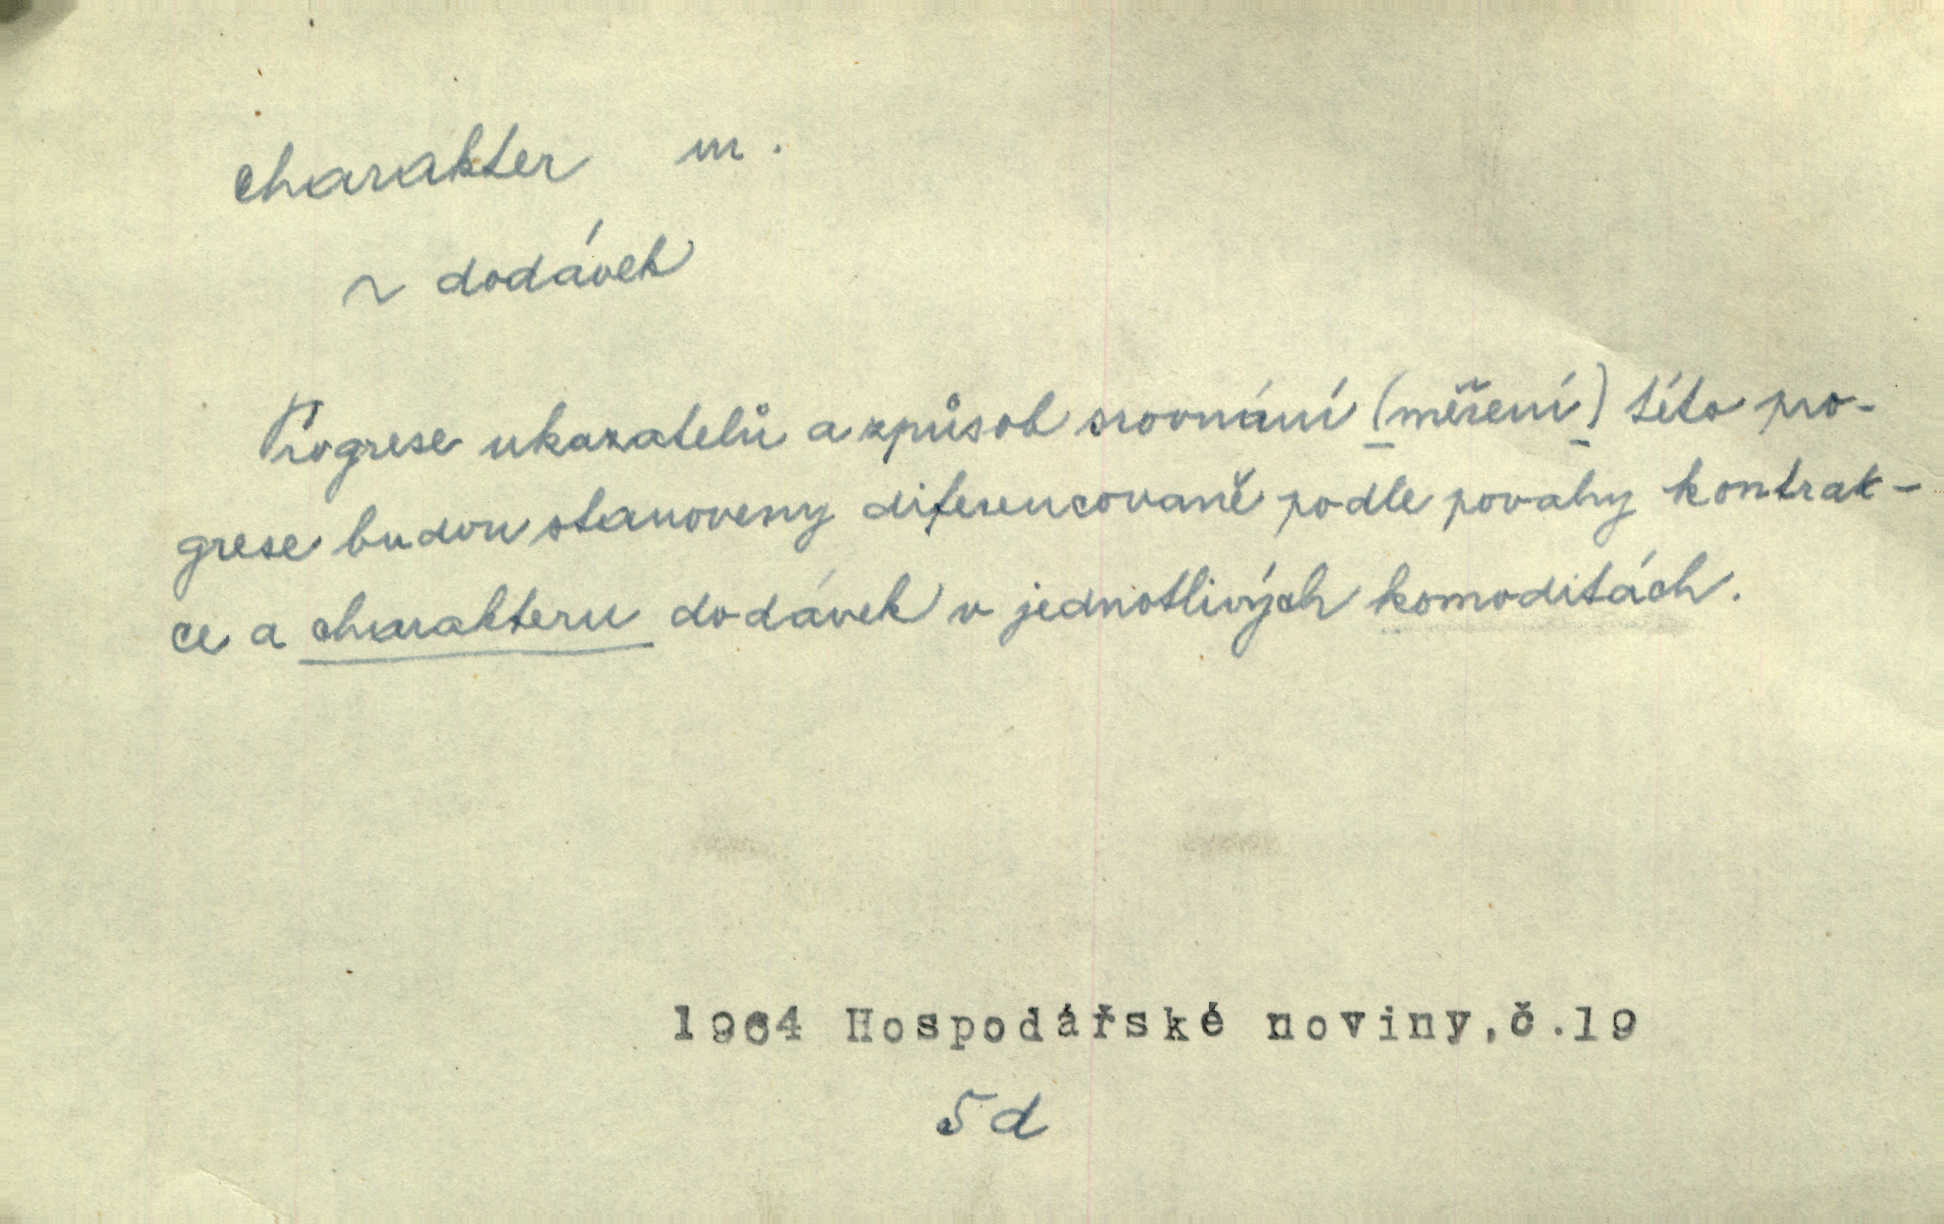 charakter m.
~ dodávek
Progrese ukazatelů a způsob srovnání (měření) této pro-
grese budou stanoveny diferencovaně podle povahy kontrak-
ce a charakteru dodávek v jednotlivých komoditách.
1964 Hospodářské noviny,č.19
5d